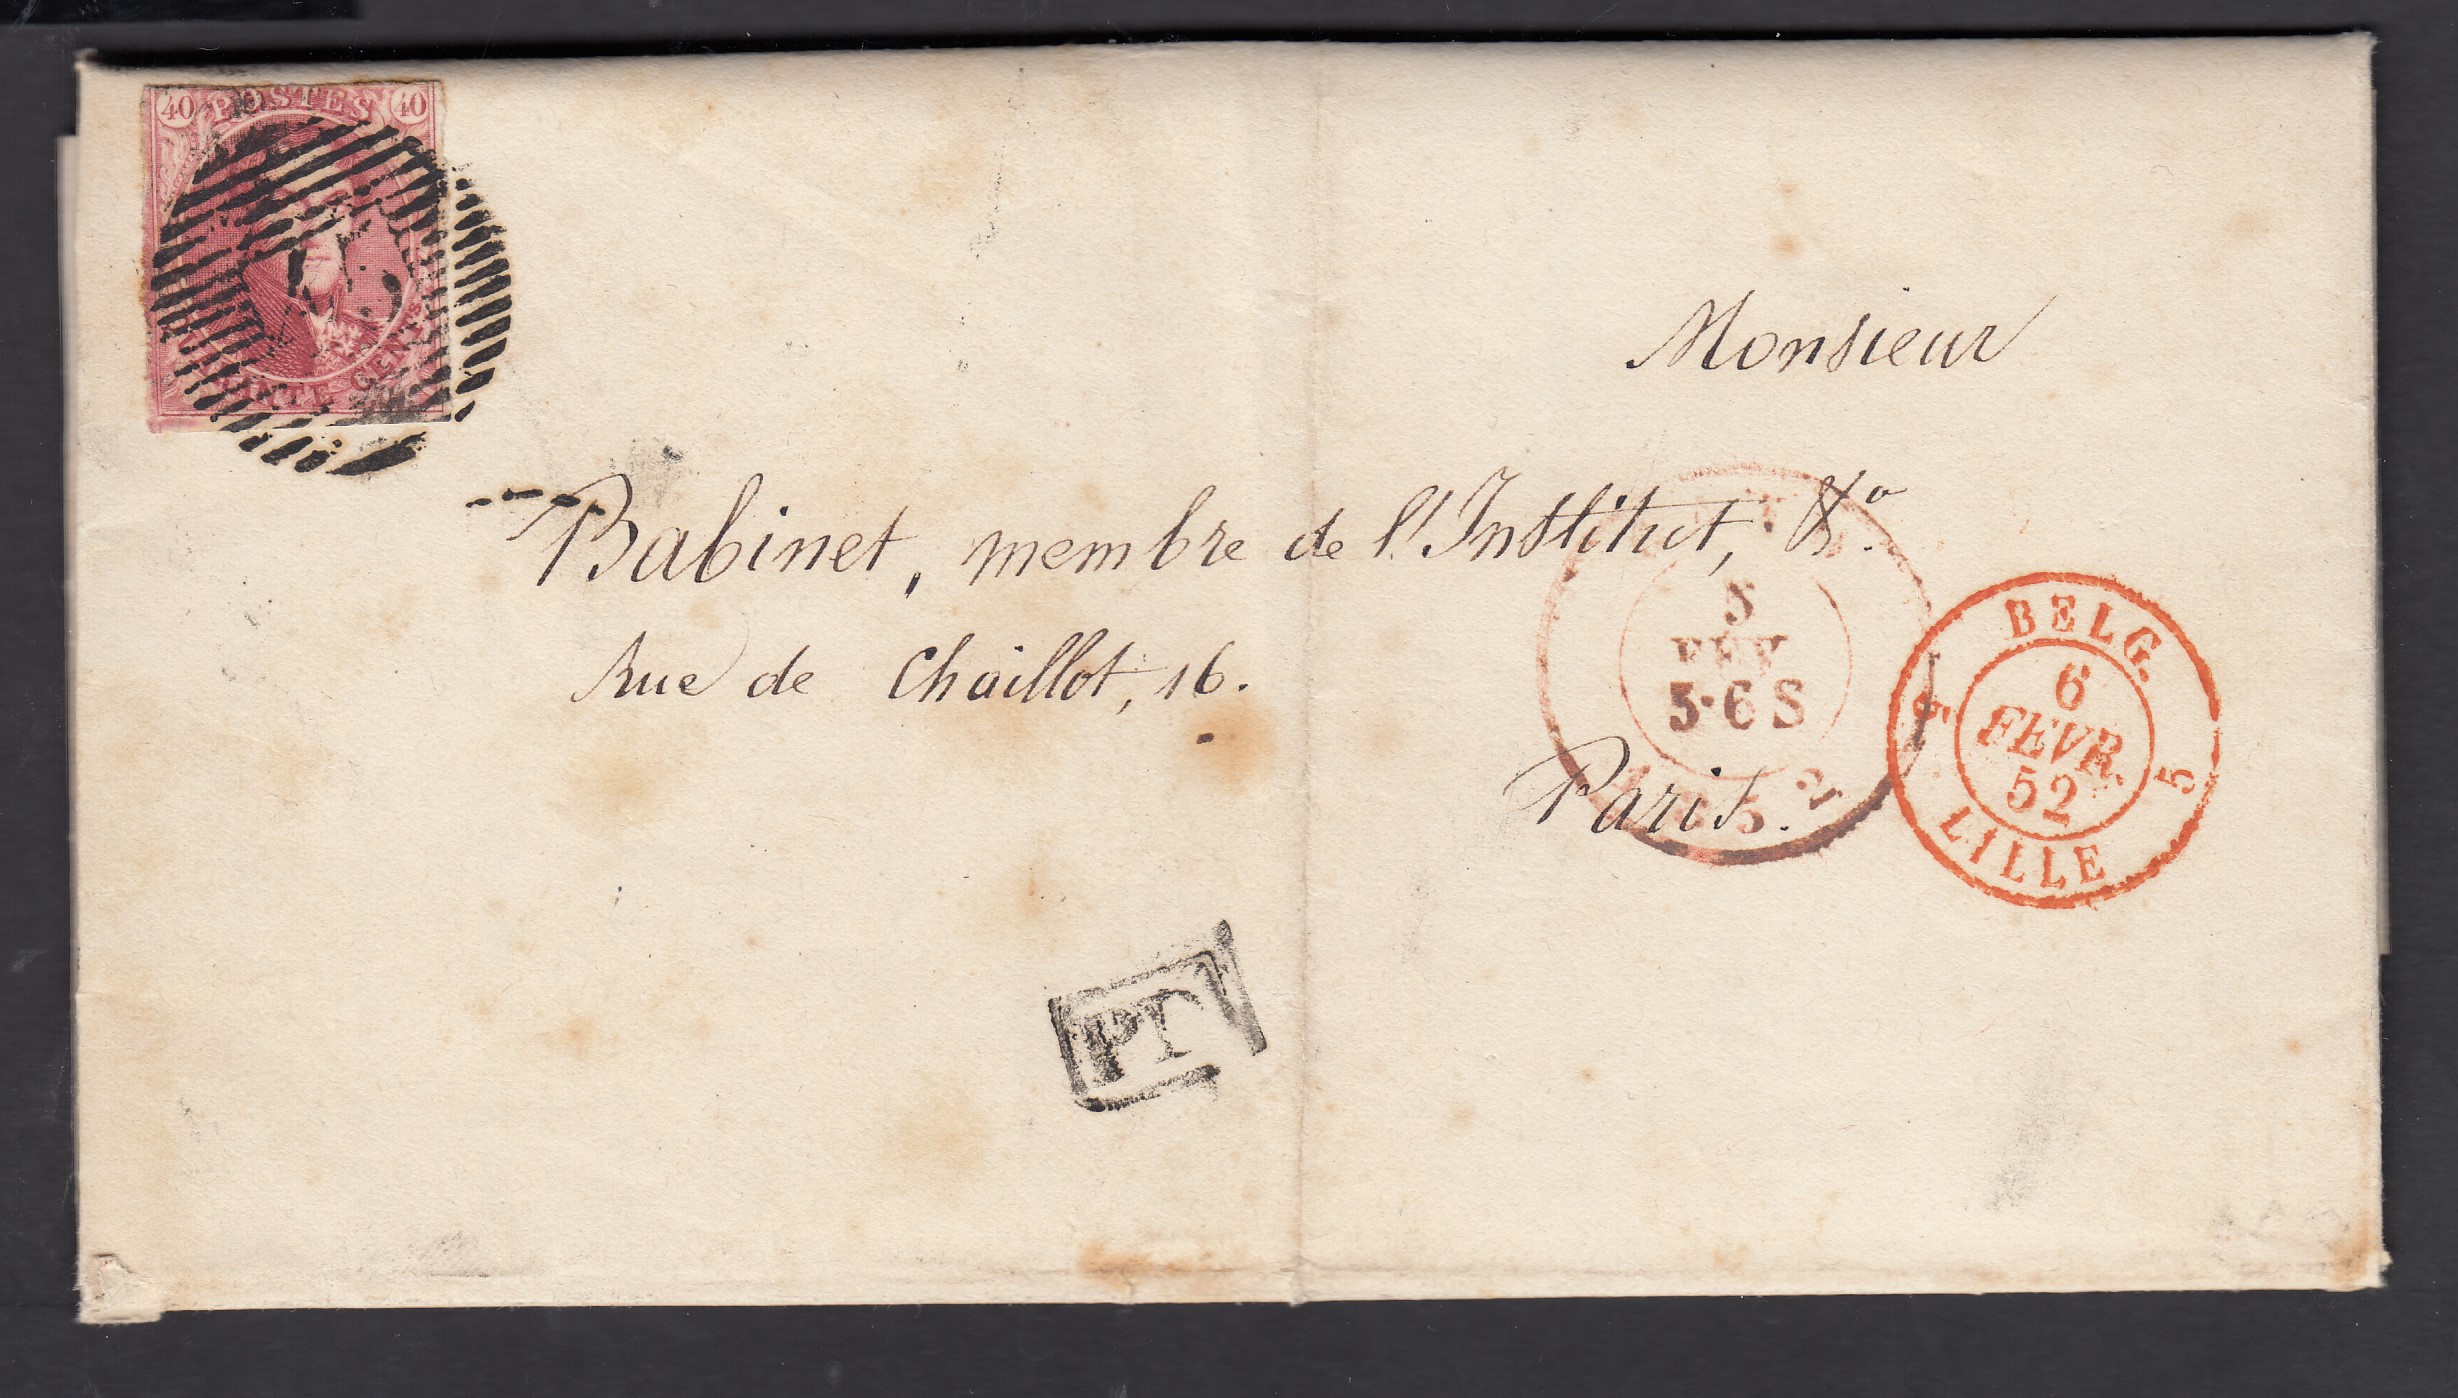 40 POSTES 40
Monsieur
Babinet, membre de l'Institut, &a.
Rue de Chaillot, 16.
Paris.
5
FEV
5·6 S
BELG.
6
FEVR.
52
5
LILLE
PD